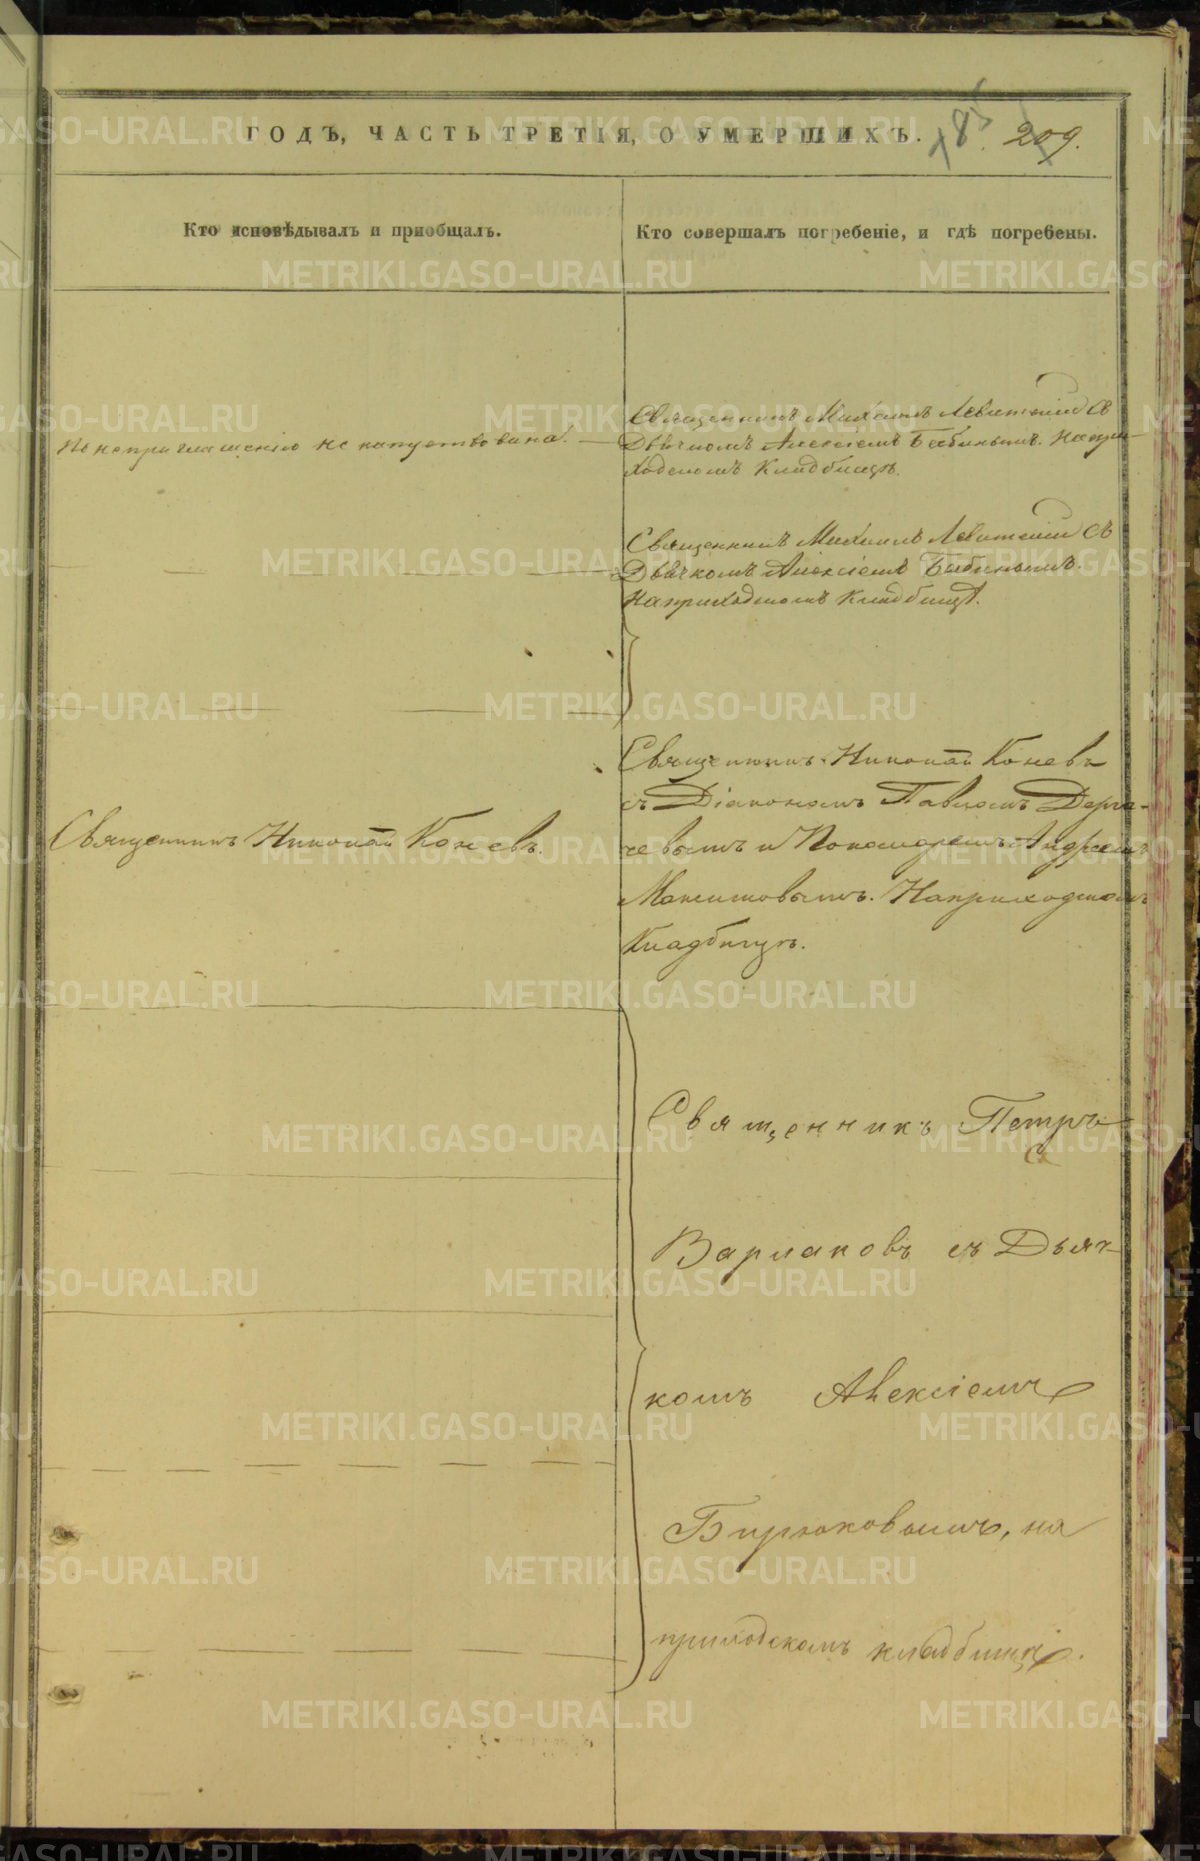 ГОДЪ, ЧАСТЬ ТРЕТІЯ, О УМЕРШИХЪ. 185. 209.
Кто исповѣдывалъ и пріобщалъ.
Кто совершалъ погребеніе, и гдѣ погребены.
По неприглашенію не напутствована.
Священникъ Михаилъ Левитскій съ
Дьячкомъ Алексіемъ Бабинымъ. На при-
ходскомъ кладбищѣ.
Священникъ Михаилъ Левитскій съ
Дьячкомъ Алексіемъ Бабинымъ.
На приходскомъ кладбищѣ.
Священникъ Николай Коневъ.
Священникъ Николай Коневъ
съ Діакономъ Павломъ Дерга-
чевымъ и Пономаремъ Андреемъ
Максимовымъ. На приходскомъ
Кладбищѣ.
Священникъ Петръ
Варлаковъ съ Дьяч-
комъ Алексіемъ
Бирюковымъ, на
приходскомъ кладбищѣ.
METRIKI.GASO-URAL.RU